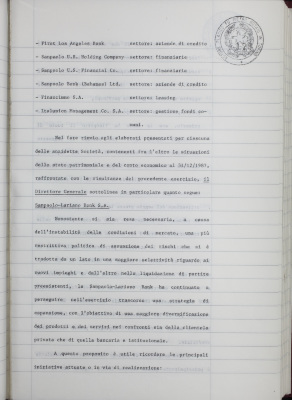 - First Los Angeles Bank settore: aziende di credito
- Sanpaolo U.S. Holding Company settore: finanziario
- Sanpaolo U.S. Financial Co. settore: finanziario
- Sanpaolo Bank (Bahamas) Ltd. settore: aziende di credito
- Financiere S.A. settore: leasing
- Management Co. S.A. settore: gestione fondi co-
muni.
Nel fare rinvio agli elaborati presentati per ciascuna
delle suddette Società, contenenti fra l'altro le situazioni
dello stato patrimoniale e del conto economico al 31/12/1991,
raffrontate con le risultanze del precedente esercizio, il
Direttore Generale sottolinea in particolare quanto segue:
Sanpaolo-Lariano Bank S.A.
Nonostante si sia resa necessaria, a causa
dell'instabilità delle condizioni di mercato, una più
restrittiva politica di assunzione dei rischi che si è
tradotta da un lato in una maggiore selettività riguardo ai
nuovi impieghi e dall'altro nella liquidazione di partite
preesistenti, la Sanpaolo-Lariano Bank ha continuato a
perseguire nell'esercizio trascorso una strategia di
espansione, con l'obiettivo di una maggiore diversificazione
dei prodotti e dei servizi nei confronti sia della clientela
privata che di quella bancaria e istituzionale.
A questo proposito è utile ricordare le principali
iniziative attuate o in via di realizzazione: